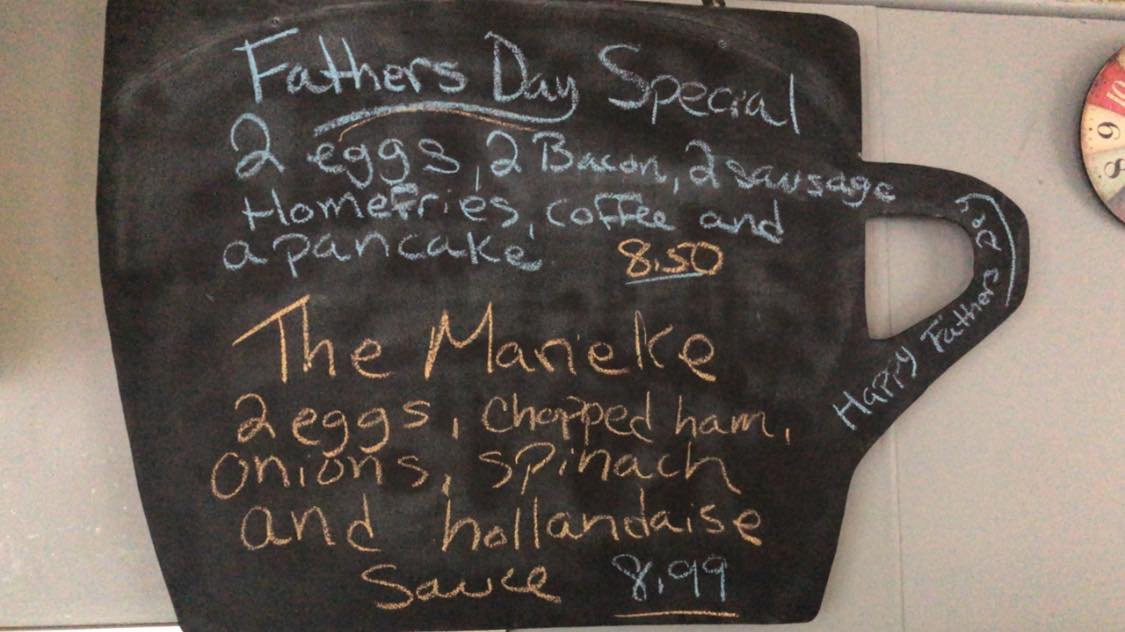 Fathers Day Special
2 eggs, 2 Bacon, 2 sausage
Homefries, coffee and
a pancake 8.50
The Marieke
2 eggs, chopped ham,
onions, spinach
and hollandaise
Sauce 8.99
Happy Fathers Day
10
9
8